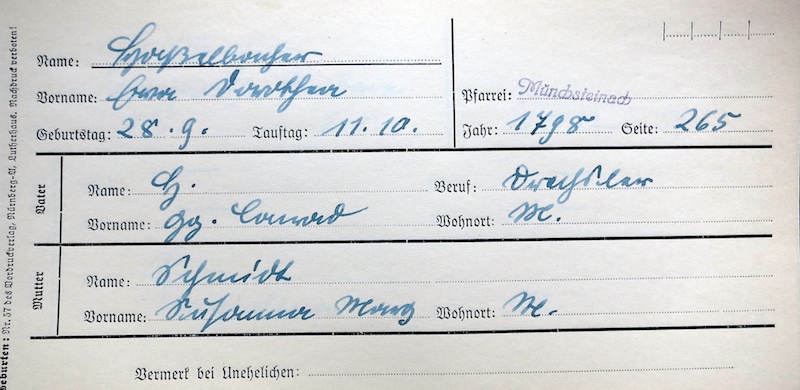 Name: Haßelbacher
Vorname: Eva Dorothea
Pfarrei: Münchsteinach
Geburtstag: 28.9. Tauftag: 11.10.
Jahr: 1798 Seite: 265
Vater
Name: H. Beruf: Drechsler
Vorname: Gg. Conrad Wohnort: M.
Mutter
Name: Schmidt
Vorname: Susanna Marg Wohnort: M.
Vermerk bei Unehelichen:
Geburten: Nr. 57 des Vordruckverlag, Nürnberg-A, Lutherhaus. Nachdruck verboten!